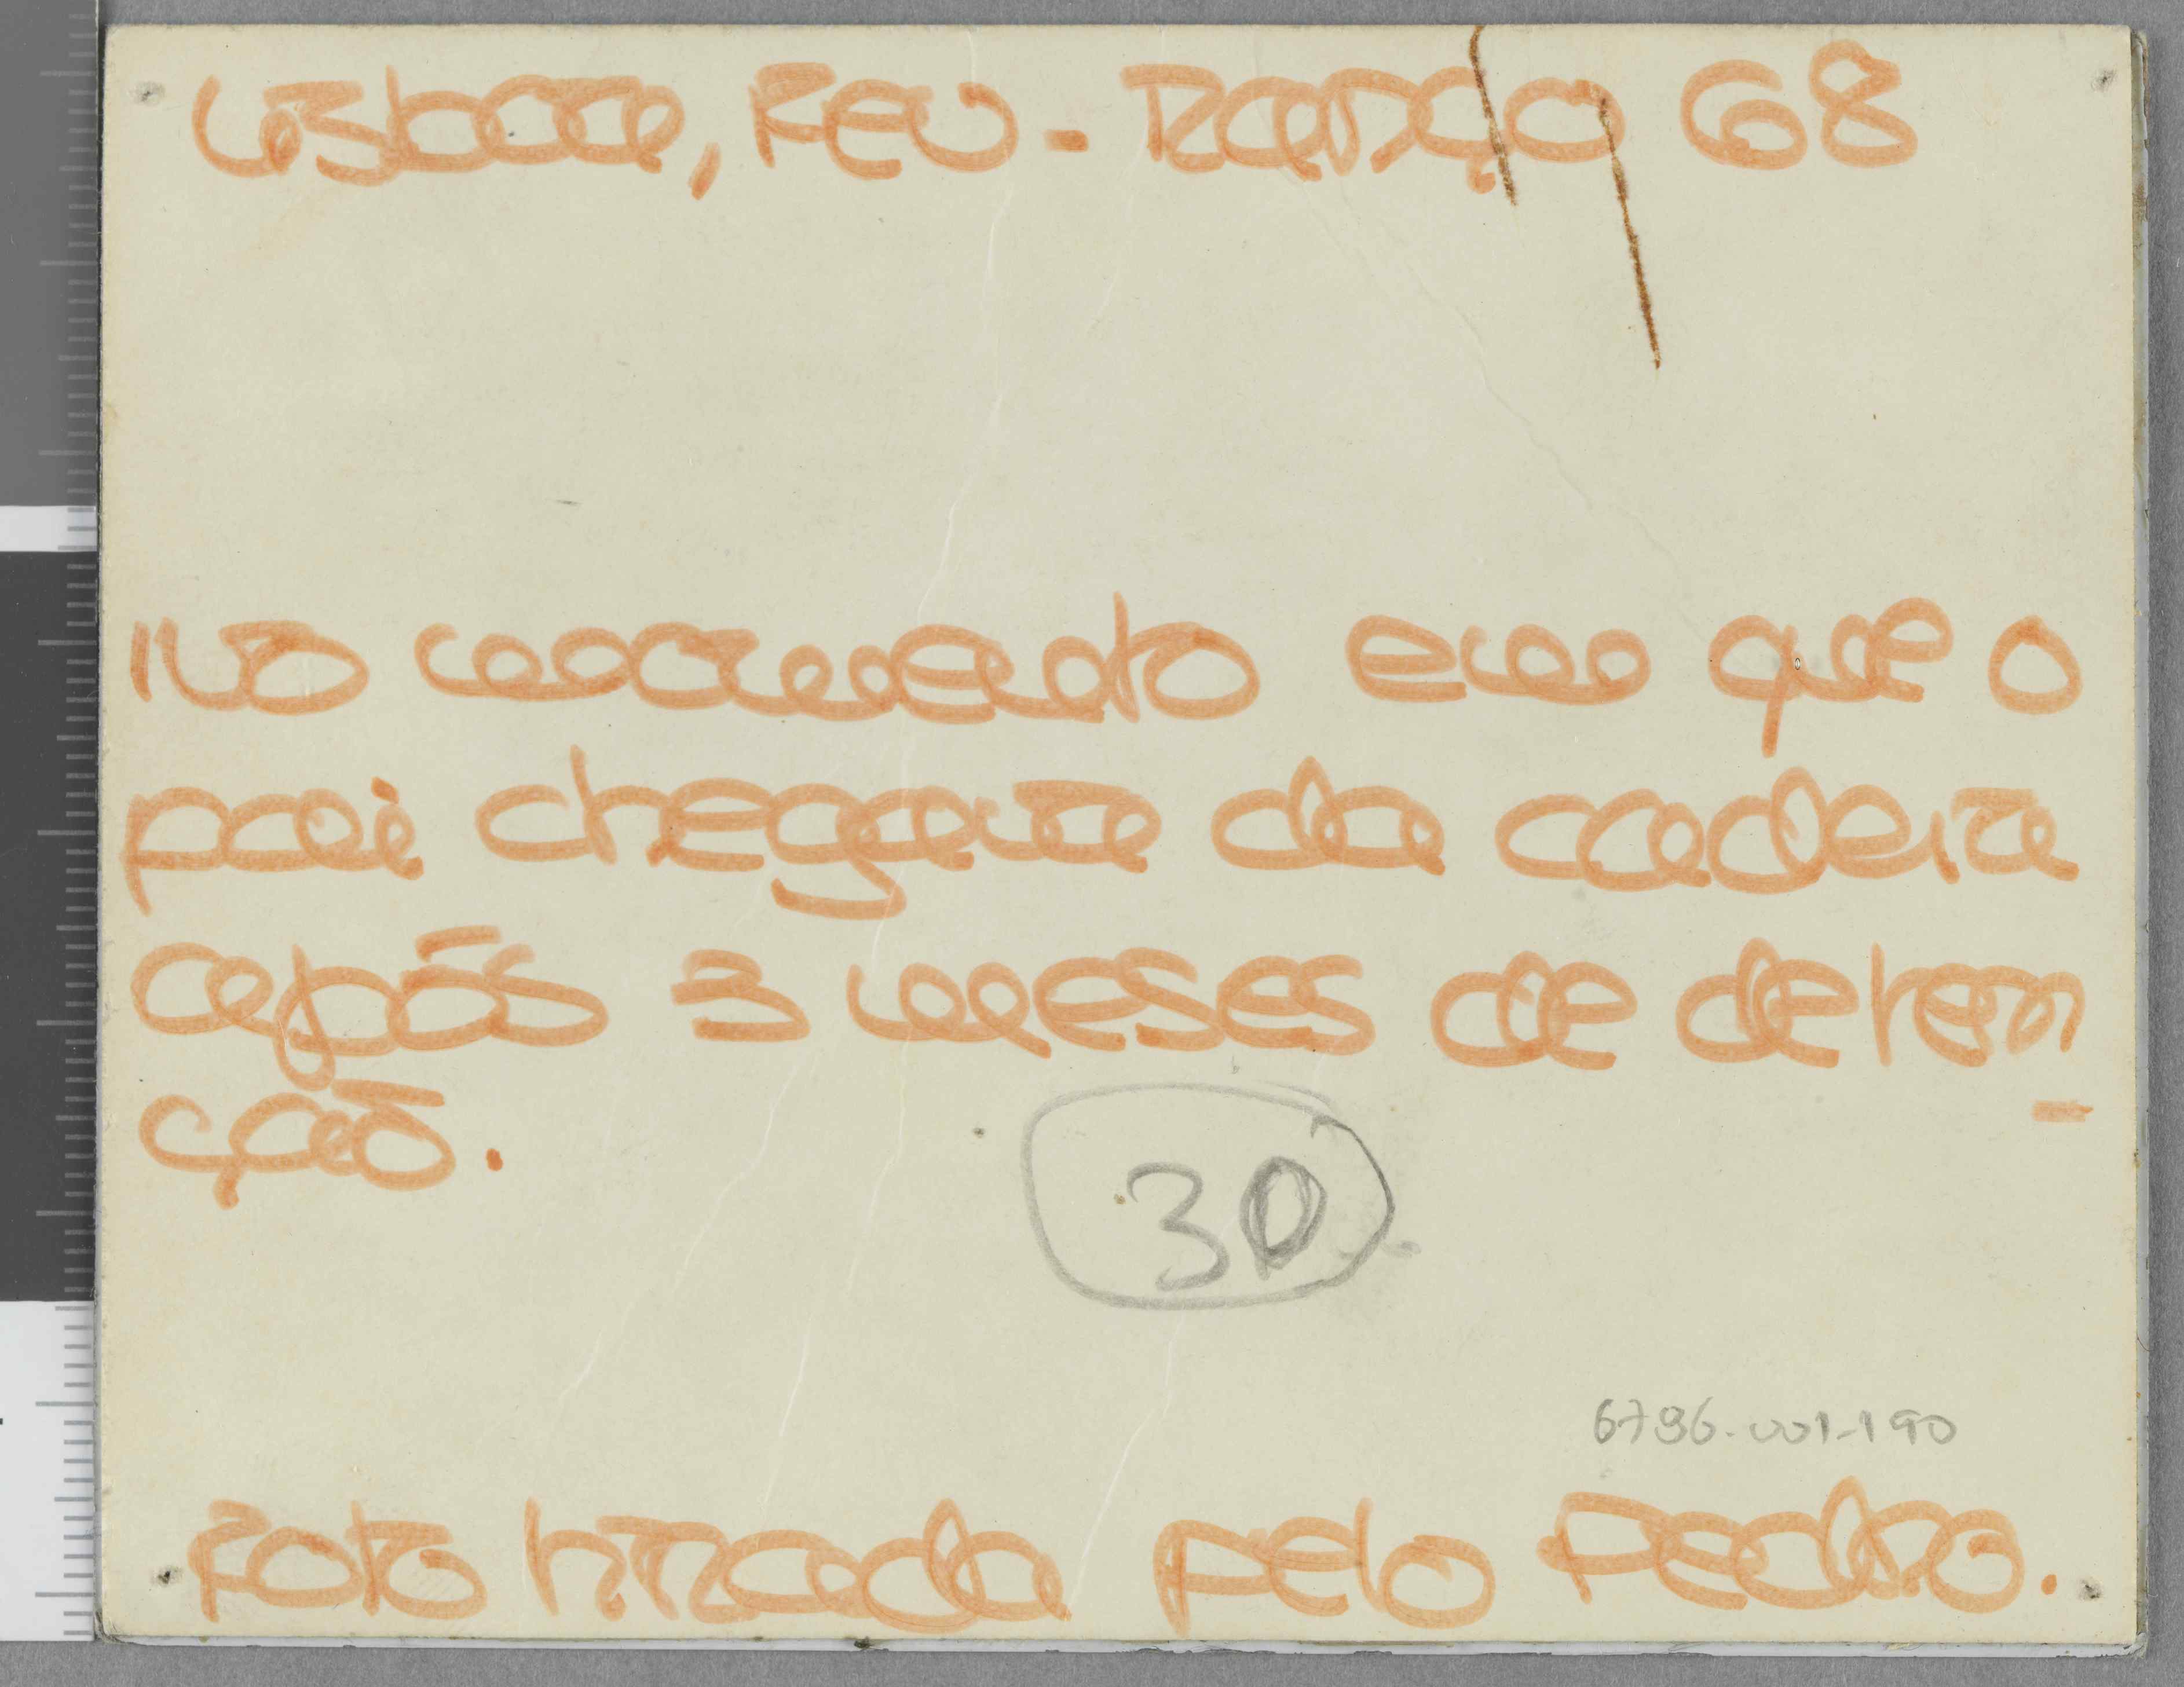 Lisboa, Fev - Março 68
No momento em que o
pai chegava da cadeia
após 3 meses de deten
-
ção.
30
6796-001-190
Foto tirada pelo Pedro.